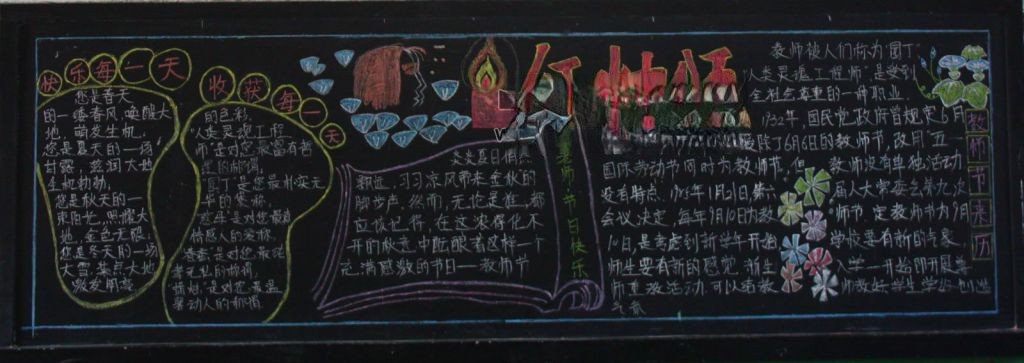 快乐每一天
您是春天
的一缕春风,唤醒大
地,萌发生机,
您是夏天的一场
甘露,滋润大地
生机勃勃,
您是秋天的一
束阳光,照耀大
地,金色无限,
您是冬天的一场
大雪,装点大地
收获每一天
的色彩,
"人类灵魂工程
师"是对您最富有哲
理的称谓,
园丁是您最朴实无
华的褒称,
是对您最有
情感人的爱称
是对您最温
馨动人的称谓
炎炎夏日悄然
渐远,习习凉风带来金秋的
脚步声,然而,无论是谁,都
应该记得,在这浓得化不
开的秋意中酝酿着这样一个
充满感激的节日—教师节
老师:节日快乐
教师被人们称为"园丁"
"人类灵魂工程师"是受到
全社会尊重的一种职业,
1932年,国民党政府曾规定6月
废除了6月6日的教师节,改用"五一
国际劳动节同时为教师节,但教师没有单独活动
没有特点,1985年1月21日,第六届人大常委会第九次
会议决定,每年9月10日为教师节,定教师节为9月
10日,是考虑到新学年开始,学校要有新的气象,
师生要有新的感觉,新生入学一开始即开展尊
师重教活动,可以给教师教好学生学好创造
气氛
教师节来历